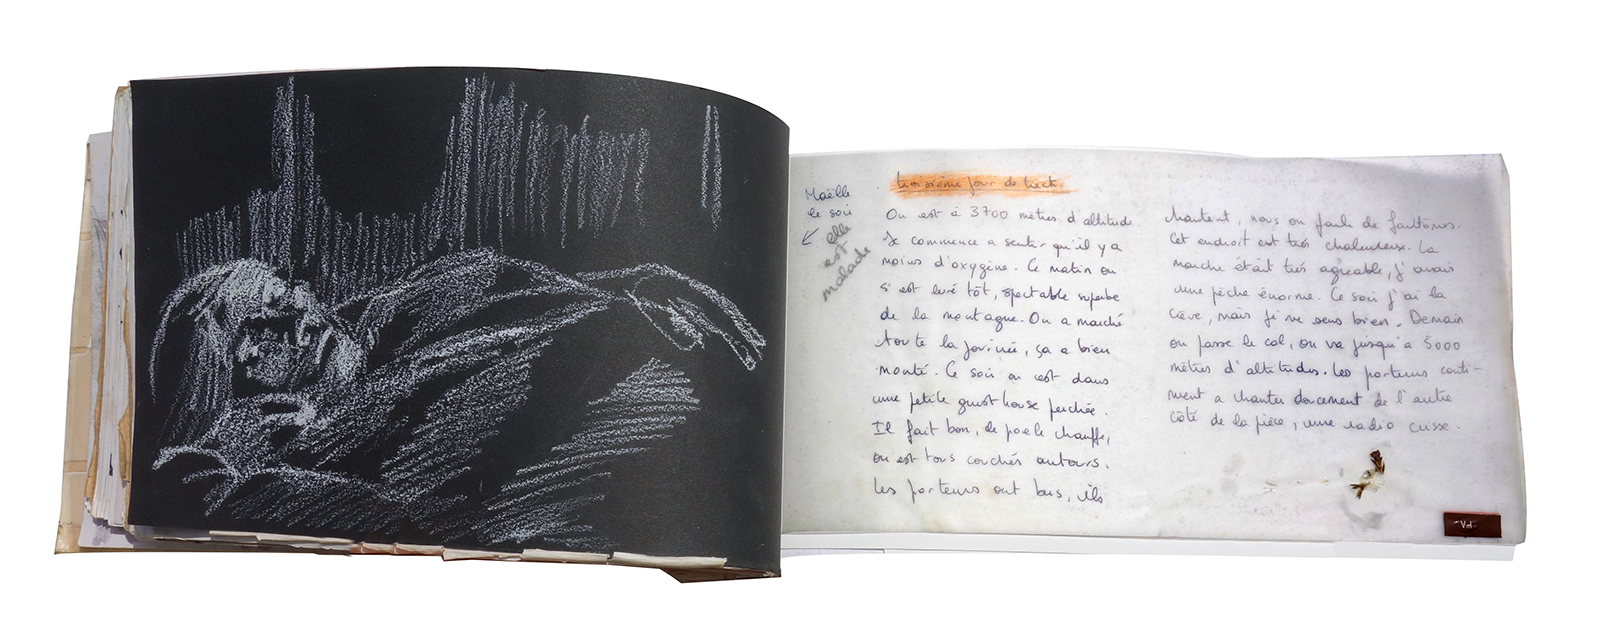 Maëlle
le soir
elle
est
malade
troisième jour de treck.
On est à 3700 mètres d'altitude.
Je commence a sentir qu'il y a
moins d'oxygène. Ce matin on
s'est levé tôt, spectable superbe
de la montagne. On a marché
toute la jovinée, ça a bien
monté. Ce soir on est dans
une petite guest house perchée.
Il fait bon, le poele chauffe,
on est tous couchés autours.
Les porteurs ont bus, ils
chantent, nous on parle de fantômes.
Cet endroit est très chaleureux. La
marche était très agréable, j'avais
une pêche énorme. Ce soir j'ai la
crève, mais je me sens bien. Demain
on passe le col, on va jusqu'a 5000
mètres d'altitudes. Les porteurs conti-
nuent a chanter doucement de l'autre
côté de la pièce, une radio